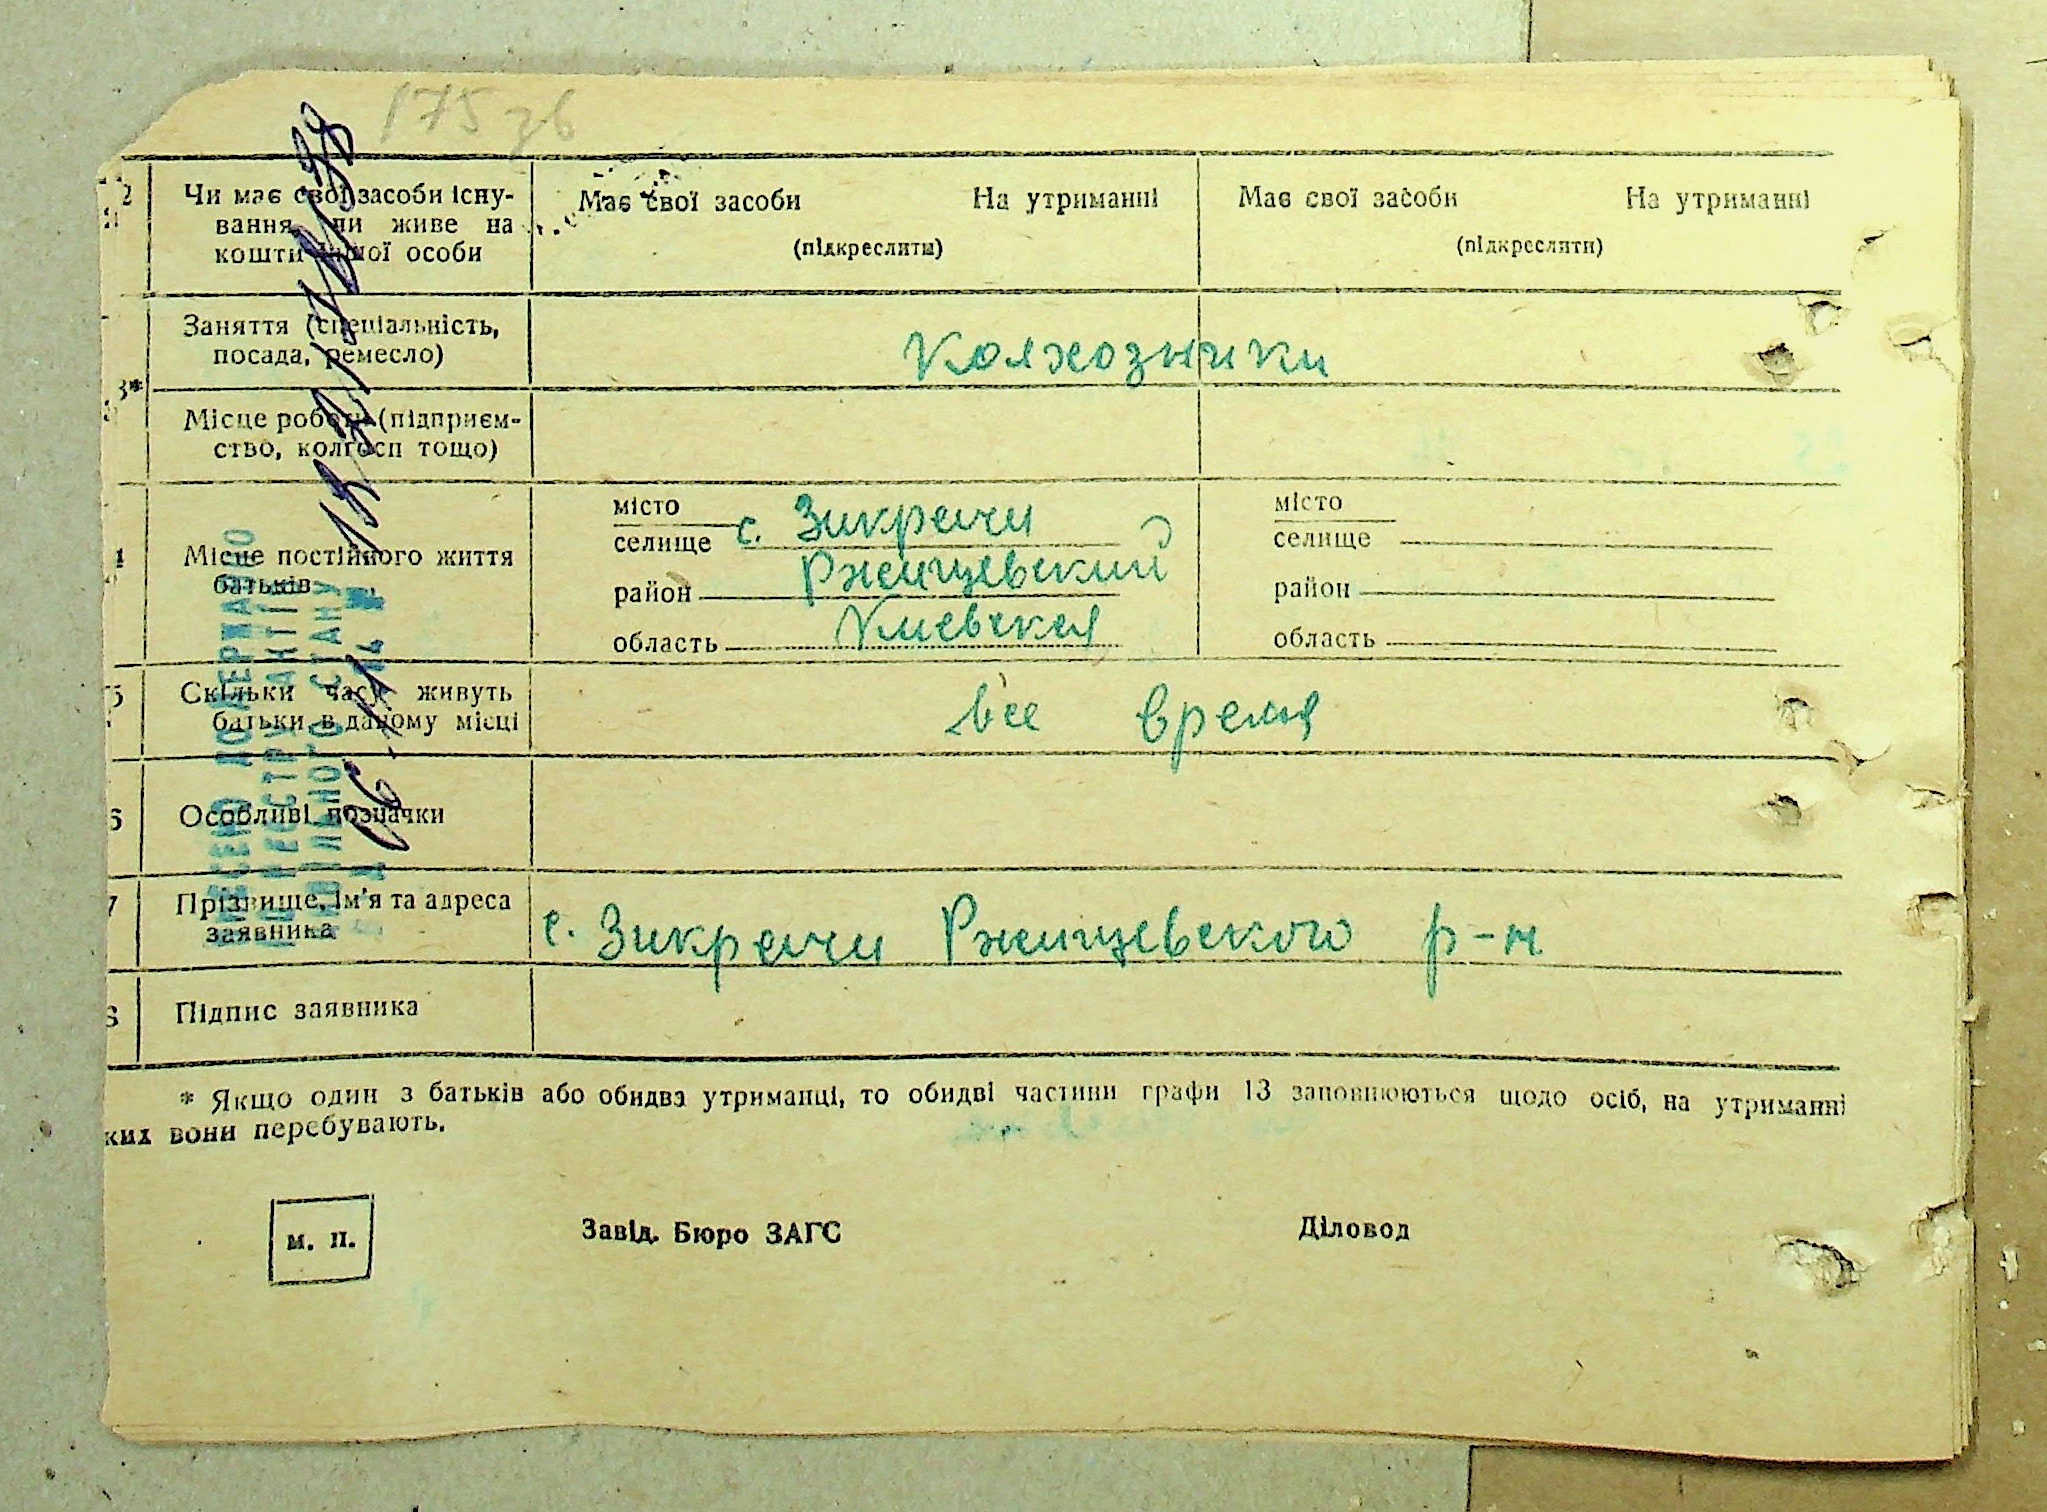 175 зв
12
Чи має свої засоби існу-
вання, чи живе на
кошти іншої особи
Має свої засоби На утриманні
(підкреслити)
Має свої засоби На утриманні
(підкреслити)
3*
Заняття (спеціальність,
посада, ремесло)
Колхозники
Місце роботи (підприєм-
ство, колгосп тощо)
4
Місце постійного життя
батьків
місто
селище с. Зикрачи
район Ржищевский
область Киевская
місто
селище
район
область
5
Скільки часу живуть
батьки в даному місці
все время
6
Особливі позначки
7
Прізвище, ім'я та адреса
заявника
с. Зикрачи Ржищевского р-н
Підпис заявника
* Якщо один з батьків або обидва утриманці, то обидві частини графи 13 заповнюються щодо осіб, на утриманні
ких вони перебувають.
м. п.
Завід. Бюро ЗАГС
Діловод
ВНЕСЕНО ДО ДЕРЖАВНО
РЕЄСТРУ АКТІВ
ЦИВІЛЬНОГО СТАНУ